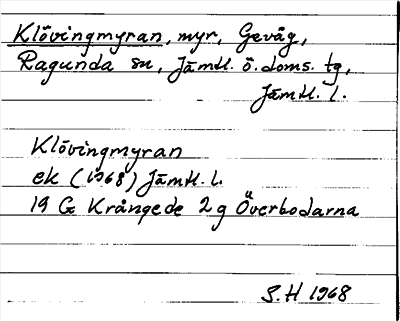 Klövingmyran, myr, Gevåg,
Ragunda sn, Jämtl. ö. doms. tg,
Jämtl. l.
Klövingmyran
ek (1968) Jämtl. l.
19 G Krångede 2 g Överbodarna
S.H 1968